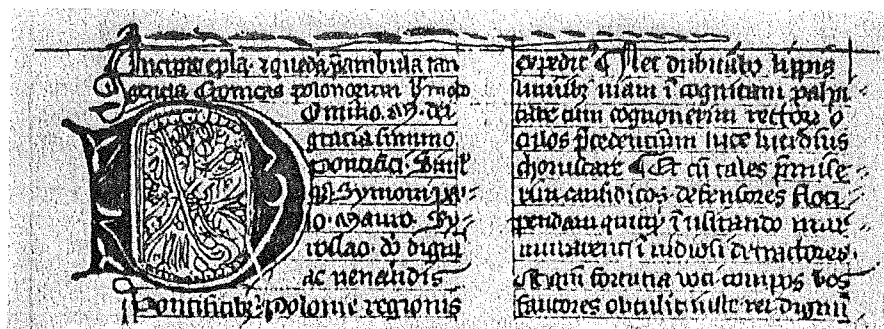 Incipit epla et quedã p̃ambula tan
gencia Cronicas polonorum
Domino .M. dei
gracia summo
pontifici Simul
q3 Symoni pa-
lo. Mauro. Sy-
roslao. do dignis
ac venerandis
Pontificib3 Polonie regionis
expedire ¶ Nec dubitabo lippis
luminib3 viam ĩcognitam palpi-
tare cum cognouerim rectorũ o
culos p̃cedencium luce lucidius
choruscare ¶ Et cũ tales p̃mise-
rim causidicos defensores floci-
pendam quitq3 mur-
murauerint ĩuidiosi detractores.
Et qm̃ fortuna voti compos vos
fautores obtulit iuste rei dignũ